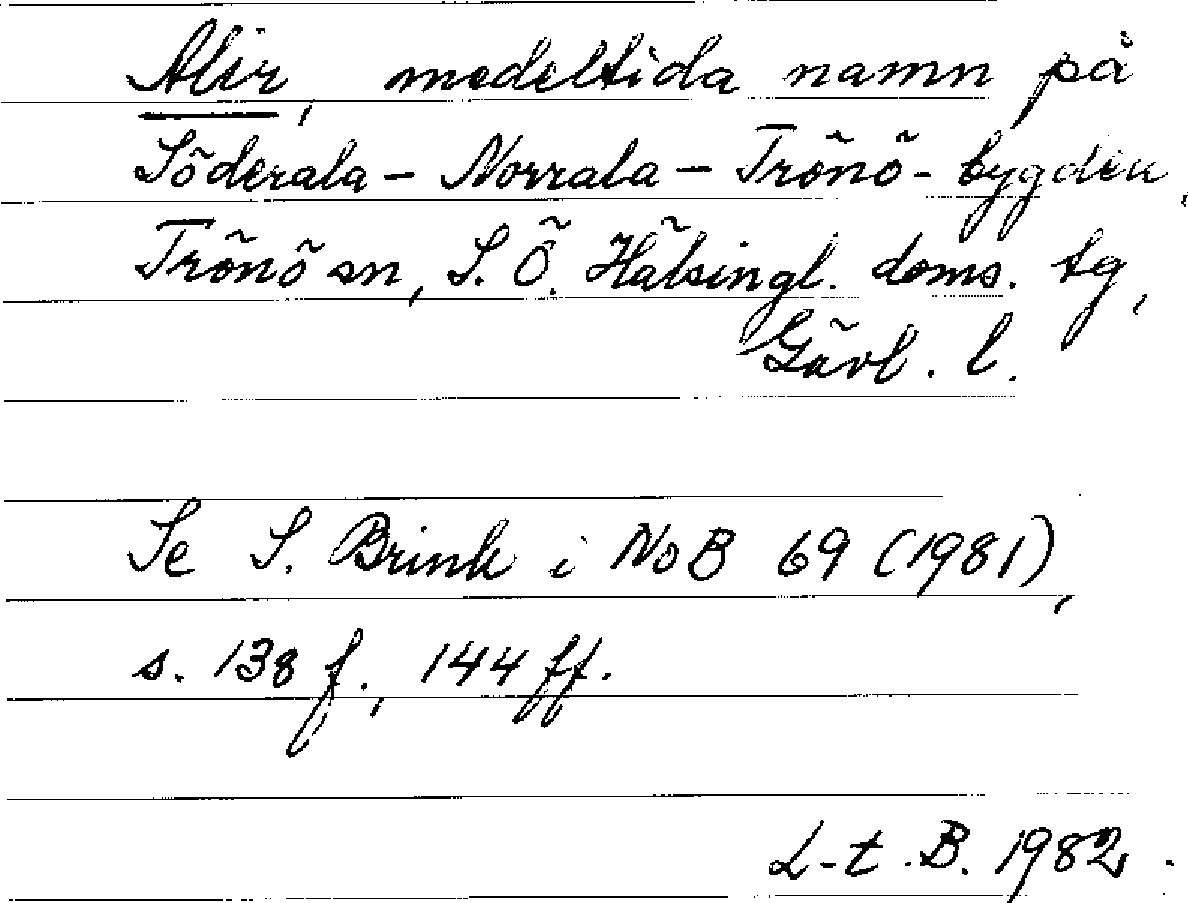 Alir, medeltida namn på
Söderala - Norrala - Trönö - bygden,
Trönö sn, S. Ö. Hälsingl. doms. tg,
Gävl. l.
Se S. Brink i NoB 69 (1981),
s. 138 f., 144 ff.
L-t. B. 1982.